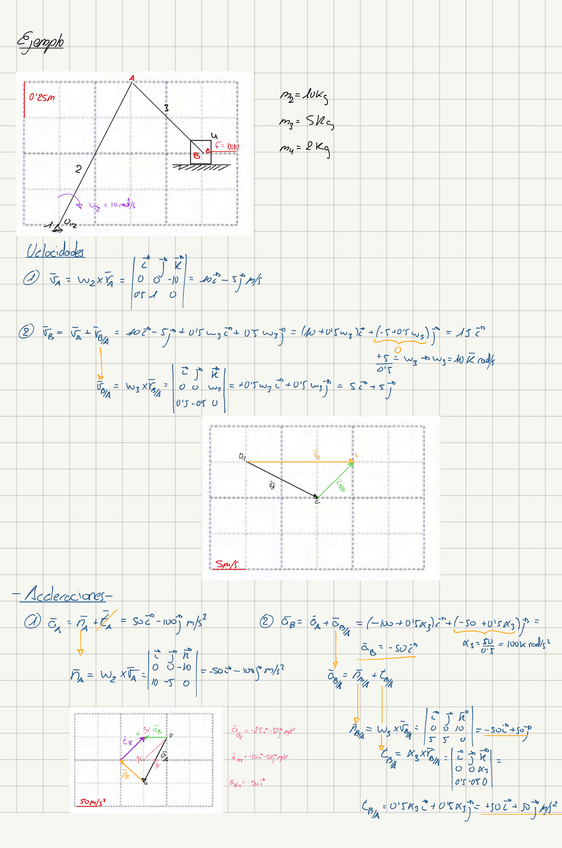 Ejemplo
0'25m
A
3
2
4
B
F=100N
ω₂ = 10 rad/s
1
O₂
m₂ = 10 Kg
m₃ = 5 Kg
m₄ = 2 Kg
Velocidades
① v̄A = ω₂ x r̄A = | i j k | 0 0 -10 | 0'5 1 0 | = 10i - 5j m/s
② v̄B = v̄A + v̄B/A = 10i - 5j + 0'5ω₃i + 0'5ω₃j = (10+0'5ω₃)i + (-5+0'5ω₃)j = 15i
0
+5/0'5 = ω₃ → ω₃ = 10 k rad/s
v̄B/A = ω₃ x r̄B/A = | i j k | 0 0 ω₃ | 0'5 -0'5 0 | = +0'5ω₃i + 0'5ω₃j = 5i + 5j
5m/s
- Aceleraciones -
① āA = n̄A + t̄A = 50i - 100j m/s²
n̄A = ω₂ x v̄A = | i j k | 0 0 -10 | 10 -5 0 | = -50i - 100j m/s²
② āB = āA + āB/A = (-100 + 0'5α₃)i + (-50 + 0'5α₃)j =
āB = -50i
α₃ = 50/0'5 = 100k rad/s²
āB/A = n̄B/A + t̄B/A
n̄B/A = ω₃ x v̄B/A = | i j k | 0 0 10 | 5 5 0 | = -50i + 50j
t̄B/A = α₃ x r̄B/A = | i j k | 0 0 α₃ | 0'5 -0'5 0 | =
t̄B/A = 0'5α₃i + 0'5α₃j = +50i + 50j m/s²
50m/s²